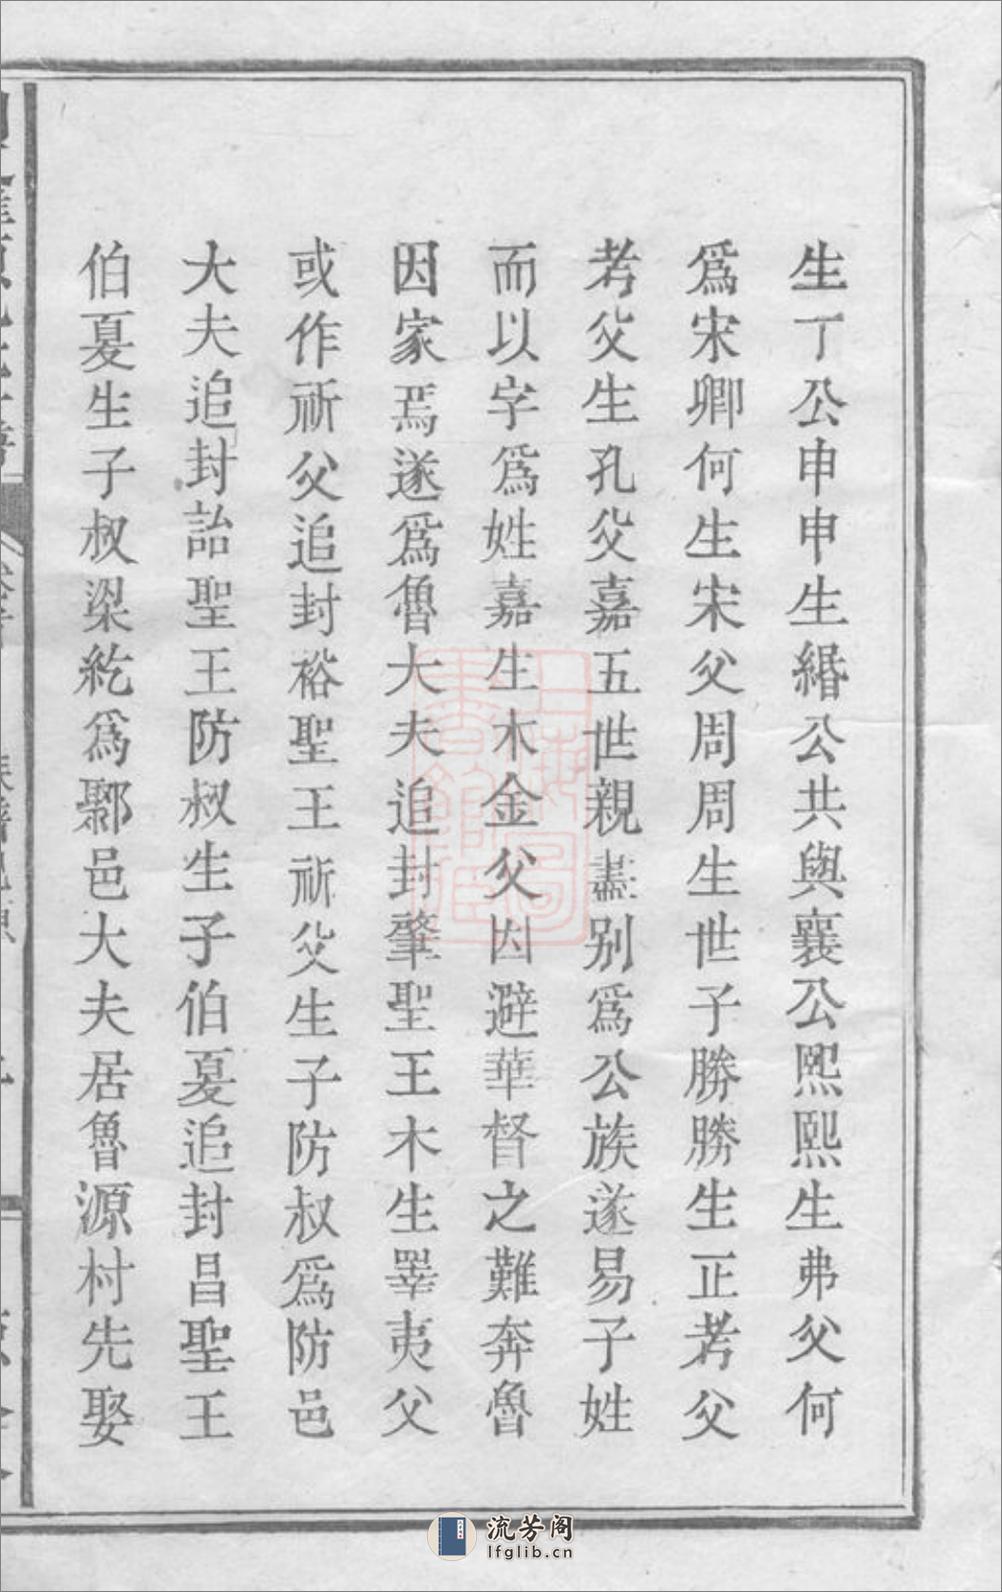 生丁公申申生緡公共與襄公熙熙生弗父何
爲宋卿何生宋父周周生世子勝勝生正考父
考父生孔父嘉五世親盡别爲公族遂易子姓
而以字爲姓嘉生木金父因避華督之難奔魯
因家焉遂爲魯大夫追封肇聖王木生睪夷父
或作祈父追封裕聖王祈父生子防叔爲防邑
大夫追封詒聖王防叔生子伯夏追封昌聖王
伯夏生子叔梁紇爲鄹邑大夫居魯源村先娶
上海圖書館藏
流芳阁
lfglib.cn